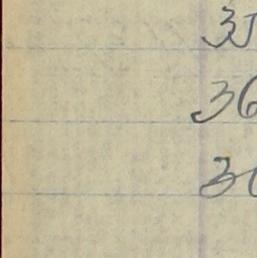 35
36
3